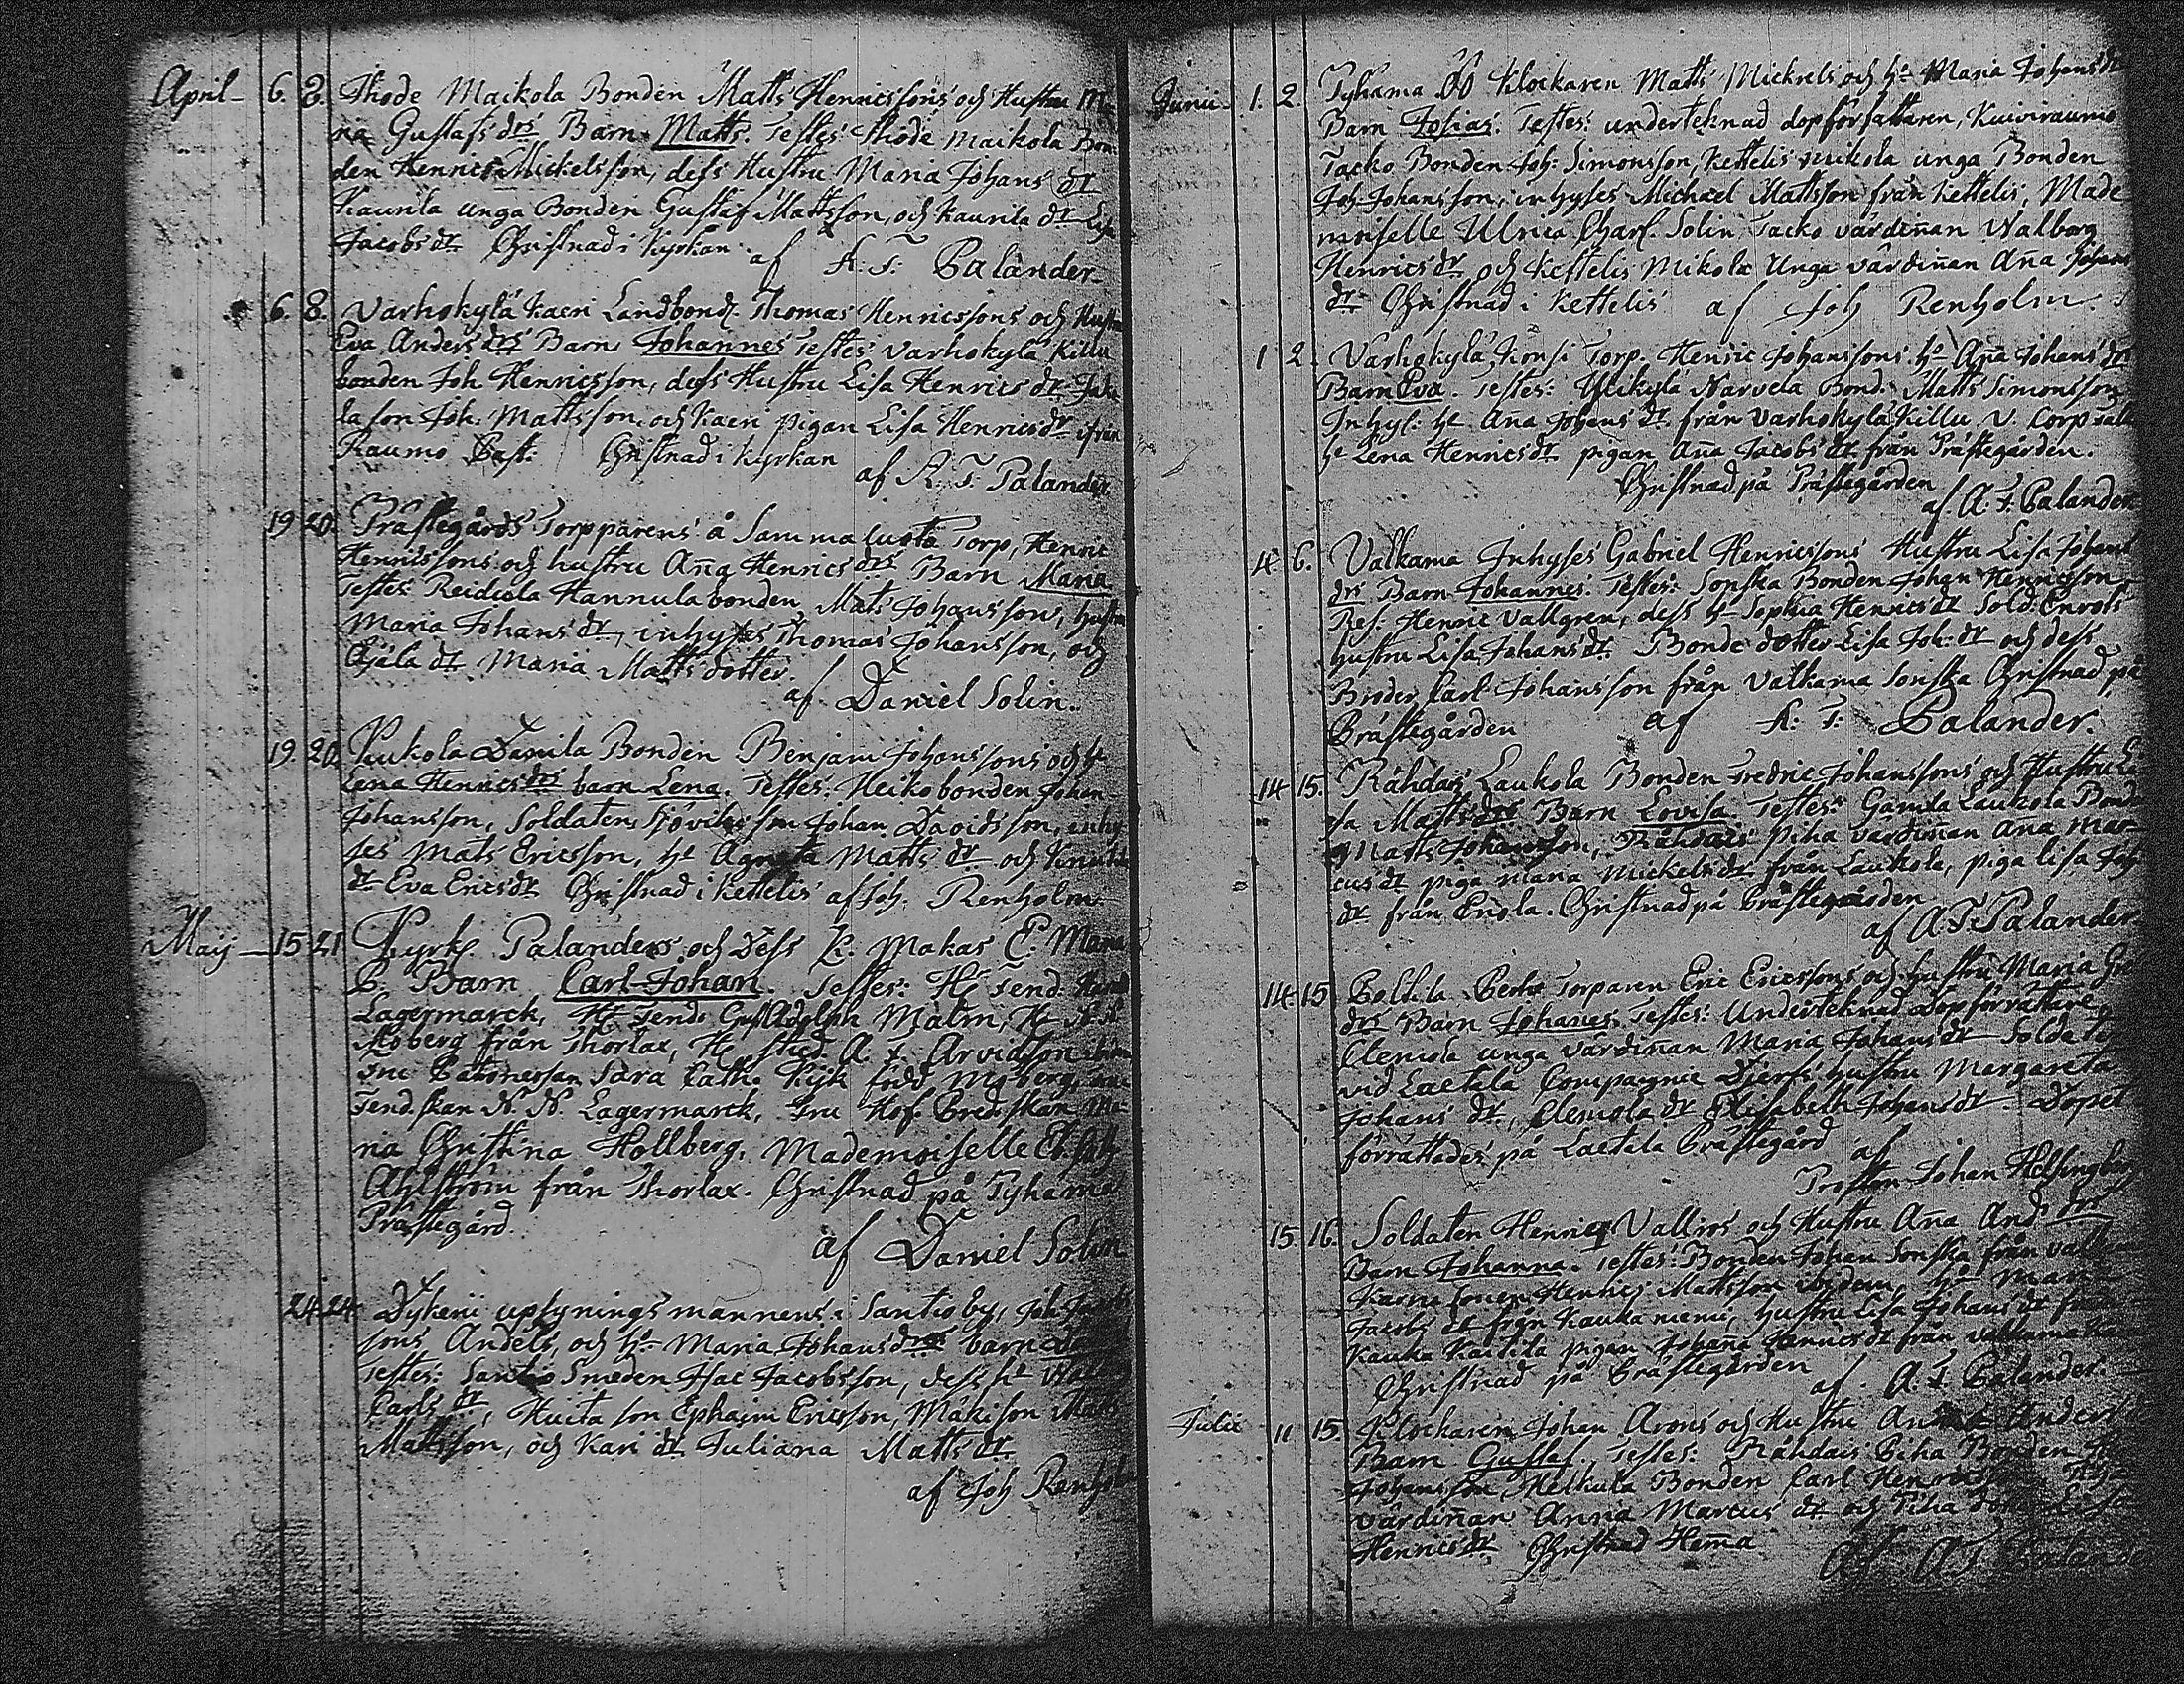 April 6. 8. Thode Maikola Bonden Matts Henricssons och Hustru Ma
na Gustafs drs Barn Matts. Testes: Thode maikola Bon
den Henric Mickelsson, dess Hustru Maria Johans dr
Kaurila unga Bonden Gustaf Mattsson, och Kaurila dr Lisa
Jacobs dr Christnad i Kyrkan af A: F: Palander
6. 8. Varhokylä Kaeri Landbond. Thomas Henricssons och Hustru
Eva Anders drs Barn Johannes Testes: Varhokylä Killu
bonden Joh. Henricsson, dess Hustru Lisa Henrics dr
la son Joh. Mattsson, och Kaeri pigan Lisa Henricsdr ifrån
Raumo Past: Christnad i Kyrkan
af A. F. Palander
19 20 Prästegårds Torpparens å Sammaluoto Torp, Henric
Henricssons och hustru Aña Henrics drs Barn Maria
Testes: Reidiola Hannula bonden Mats Johansson, hustru
Maria Johans dr, inhyses Thomas Johansson, och
Äjälä dr Maria Matts dotter.
af Daniel Solin.
19. 20. Kukola Danila Bonden Benjam Johanssons och h:
Lena Henrics drs barn Lena. Testes: Heiko bonden Johan
Johansson, Soldaten Johan Davidsson, inhy
ses Mats Ericsson, h: Agneta Matts dr och
dr Eva Erics dr Christnad i Kettelis af Joh. Renholm
Maij 15 21 Kyrkh. Palanders och Dess K. Makas E: Maria
B. Barn Carl Johan. Testes: H: Fend.
Lagermarck, H: Fend. Gust Adolph Malm, H:
Moberg från Thorlax, H: Stud. A. F. Arvidsson
Fru Sara Cath. Kijk född Moberg,
Fend. skan N. N. Lagermarck, Fru Hof. Pred. skan Ma
ria Christina Hollberg, Mademoiselle
Ahlström från Thorlax. Christnad på Tyhama
Prästegård.
af Daniel Solin
24 24 Dykerii upsynings mannens i Santio by, Joh
sons Andels, och h: Maria Johans drs barn
Testes: Santio Smeden Isac Jacobsson, dess h:
Carls dr, Kuita son Ephaim Ericsson, Mäki son Matts
Mattsson, och Kari dr Juliana Matts dr
af Joh Renhol
Junii 1. 2. Tyhama Klockaren Matts Mickels och h: Maria Johans dr
Barn Josias. Testes: underteknad dopförfattaren, Kuiviraumo
Tacko Bonden Joh: Simonsson, Kettelis mikola unga Bonden
Joh Johansson, inhyses Michael Mattsson från Kettelis, Made
moiselle Ulrica Charl. Solin Tacko värdiñan Walborg
Henrics dr och Kettelis Mikola Unga värdiñan Aña Johans
dr Christnad i Kettelis af Joh Renholm.
1 2. Varhokylä Könsi Torp. Henric Johanssons h: Aña Johans drs
Barn Eva. Testes: Ylikylä Narvela Bond. Matts Simonsson
Inhys: h: Aña Johans dr från Varhokylä Killu V. Corp
h: Lena Henrics dr pigan Aña Jacobs dr från Prästegården.
Christnad på Prästegården
af. A: F: Palander
4 6. Valkama Inhyses Gabriel Henricssons Hustru Lisa Johans
drs Barn Johannes. Testes: Sonska Bonden Johan Henricsson
Res: Henric Vallgren, dess h: Sophia Henrics dr Sold: Enrols
hustru Lisa Johans dr. Bonde dotter Lisa Joh: dr och dess
Broder Carl Johansson från Valkama Sonska Christnad på
Prästegården af A: F: Palander.
14 15. Råhdais Laukola Bonden Fredric Johanssons och Hustru Lo
sa Matts drs Barn Lovisa. Testes: Gamla Laukola Bonden
Matts Johansson, Råhdais Piha värdiñan Aña Mar
cus dr piga Maria Mickels dr från Laukola, piga Lisa Joh
dr från Enola. Christnad på Prästegården
af A. F. Palander
14. 15 Torparen Eric Ericssons och hustru Maria Gre
drs Barn Johañes. Testes: Underteknad Dopförrättare
Clemola unga värdiñan Maria Johans dr Soldaten
vid Laetala Compagnie Djerfs hustru Margareta
Johans dr, Clemola dr Elisabeth Johans dr. Dopet
förrättades på Laetala Prästegård af
Prosten Johan Helsingberg
15. 16. Soldaten Henric Vallros och Hustru Aña And: drs
Barn Johanna. Testes: Bonden Johan Sonska från Valkama
Henric Mattsson ibidem, h: Maria
Jacobs dr från Kaukaniemi, hustru Lisa Johans dr från
Kauka Kaitila pigan Johaña Henrics dr från Valkama
Christnad på Prästegården af. A. F. Palander.
Julii 11 15. Klockaren Johan Arons och Hustru Anders
Barn Gustaf. Testes: Råhdais Piha Bonden
Johansson, Helkula Bonden Carl Henricsson,
värdiñan Anna Marcus dr och Piha
Henrics dr Christnad Hem̃a
Af A. F. Palander